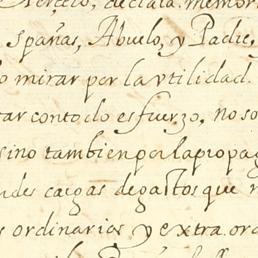 declara. memor
spañas, Abuelo, y Padre,
o mirar por la vtilidad.
tar contodo esfuerzo, no so
sino tambien por la propag
ndes cargas degastos que
s ordinarias y extra ord